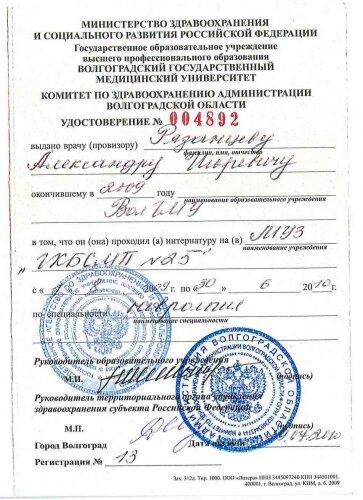 МИНИСТЕРСТВО ЗДРАВООХРАНЕНИЯ
И СОЦИАЛЬНОГО РАЗВИТИЯ РОССИЙСКОЙ ФЕДЕРАЦИИ
Государственное образовательное учреждение
высшего профессионального образования
ВОЛГОГРАДСКИЙ ГОСУДАРСТВЕННЫЙ
МЕДИЦИНСКИЙ УНИВЕРСИТЕТ
КОМИТЕТ ПО ЗДРАВООХРАНЕНИЮ АДМИНИСТРАЦИИ
ВОЛГОГРАДСКОЙ ОБЛАСТИ
УДОСТОВЕРЕНИЕ № 004892
выдано врачу (провизору) Рязанцеву
фамилия, имя, отчество
Александру Игоревичу
окончившему в 2009 году
наименование образовательного учреждения
ВолГМУ
в том, что он (она) проходил (а) интернатуру на (в) МУЗ
наименование учреждения
"ГКБСМП №25"
с « 8 09 г. по « 30 » 6 2010 г.
по специальности неврология
наименование специальности
Руководитель образовательного учреждения
М.П. (подпись)
Руководитель территориального органа управления
здравоохранения субъекта Российской Федерации
М.П. (подпись)
Город Волгоград Дата
Регистрация № 13
Зак. 312а. Тир. 1000. ООО «Литера» ИНН 3445097240 КПП 344501001.
400001, г. Волгоград, ул. КИМ, 6. 2009